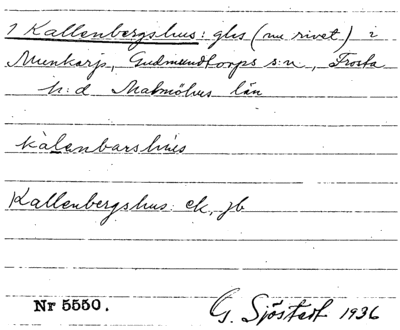 1 Kallenbergshus: ghs (nu rivet) i
Munkarp, Gudmundtorps s:n, Frosta
h:d Malmöhus län
kàlenbarshùs
Kallenbergshus: ek, jb
Nr 5550.
G. Sjöstedt 1936